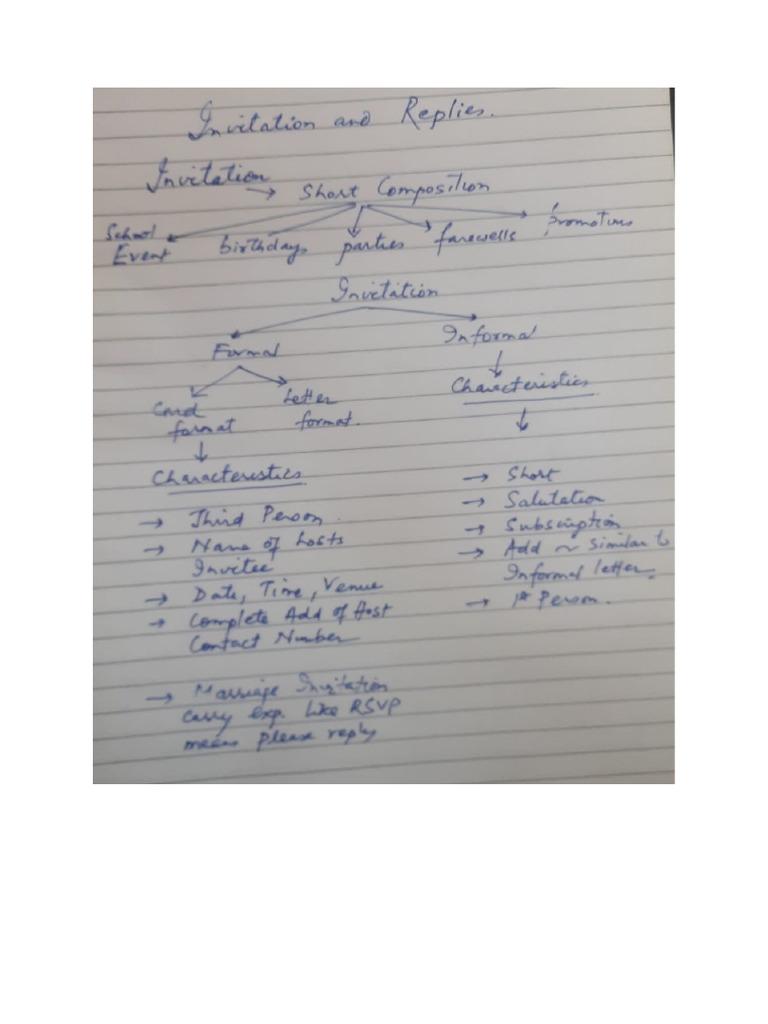 Invitation and Replies.
Invitation → Short Composition
School Event
birthdays
parties
farewells
promotions
Invitation
Formal
Informal
Card format
Letter format.
Characteristics
→ Third Person.
→ Name of hosts
Invitee
→ Date, Time, Venue
→ Complete Add of Host
Contact Number
→ Marriage Invitation
carry exp. like RSVP
means please reply
Characteristics
→ Short
→ Salutation
→ Subscription
→ Add ~ Similar to
Informal letter.
→ 1st Person.